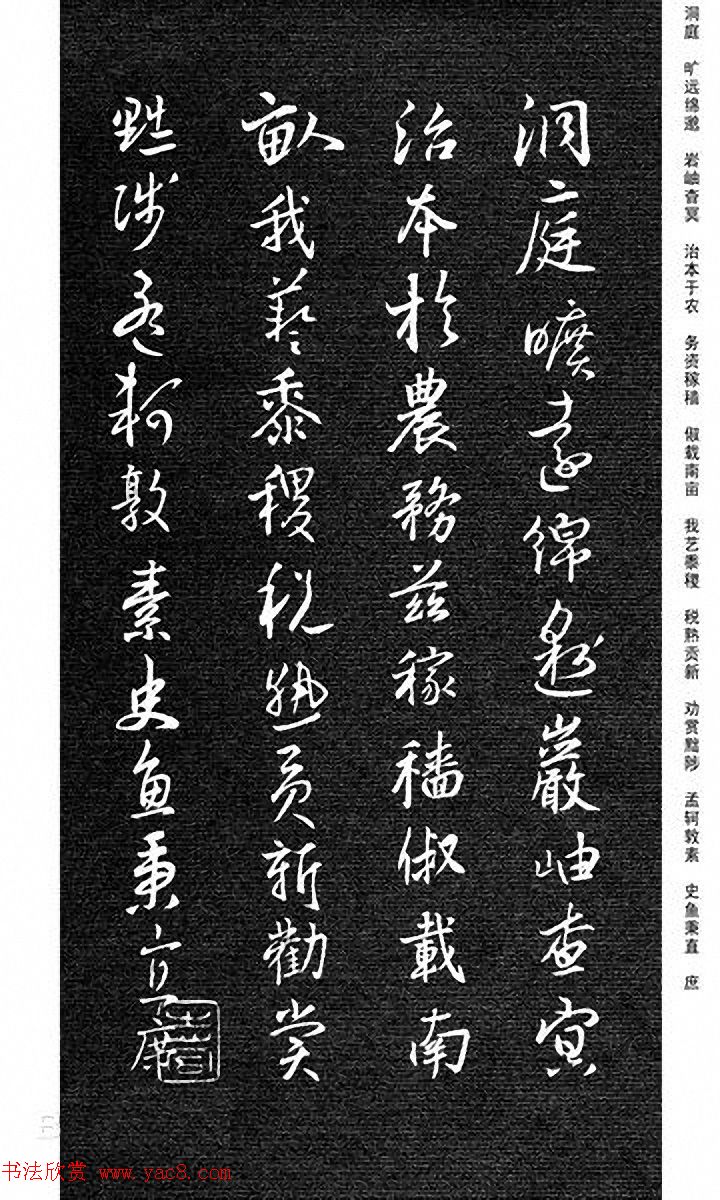 洞庭曠遠綿邈巖岫杳冥
治本於農務茲稼穡俶載南
畝我藝黍稷稅熟貢新勸賞
黜陟孟軻敦素史魚秉直庶
洞庭 旷远绵邈 岩岫杳冥 治本于农 务资稼穑 俶载南亩 我艺黍稷 税熟贡新 劝赏黜陟 孟轲敦素 史鱼秉直 庶
书法欣赏 www.yac8.com